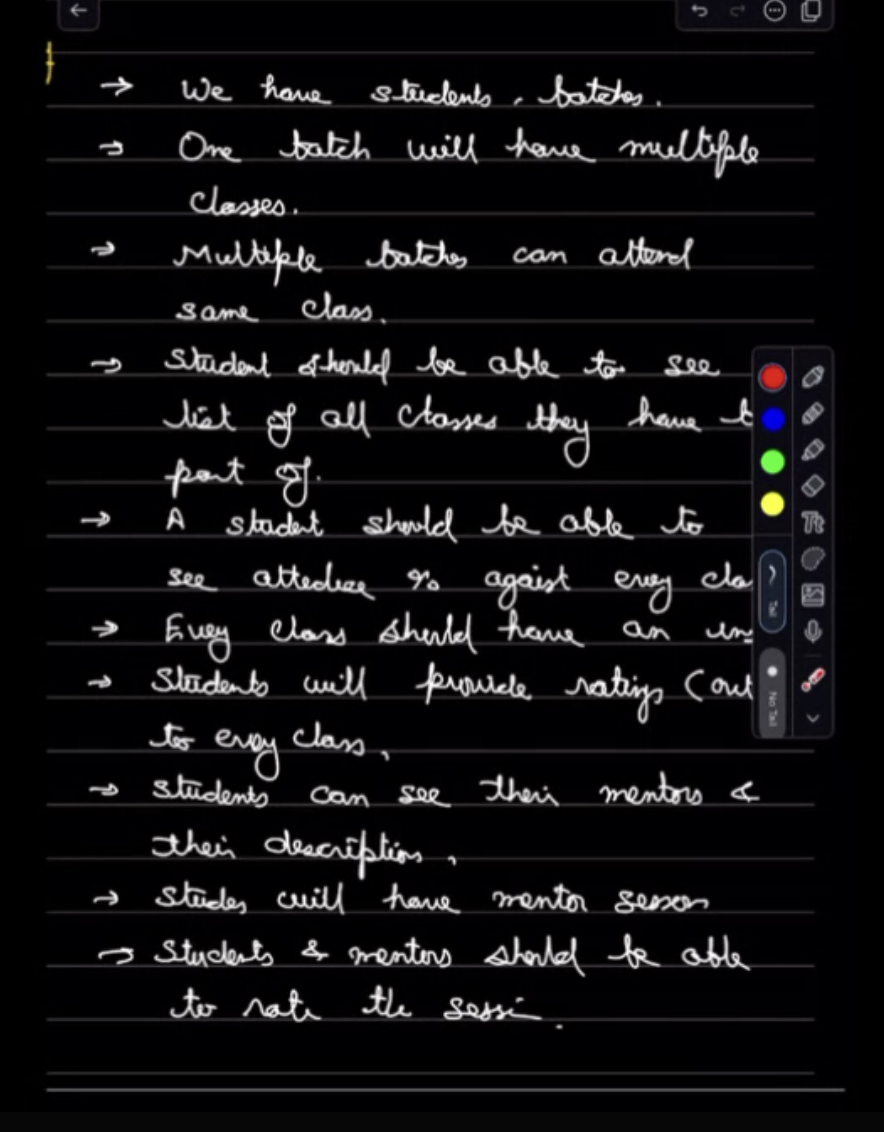 → We have students, batches.
→ One batch will have multiple
classes.
→ Multiple batches can attend
same class.
→ Student should be able to see
list of all classes they have b
part of.
→ A student should be able to
see % against every cla
→ Every class should have an ins
→ Students will provide ratings (out
to every class.
→ Students can see their mentors &
their description.
→ will have mentor
→ Students & mentors should be able
to rate the
Tt
Tail
No Tail